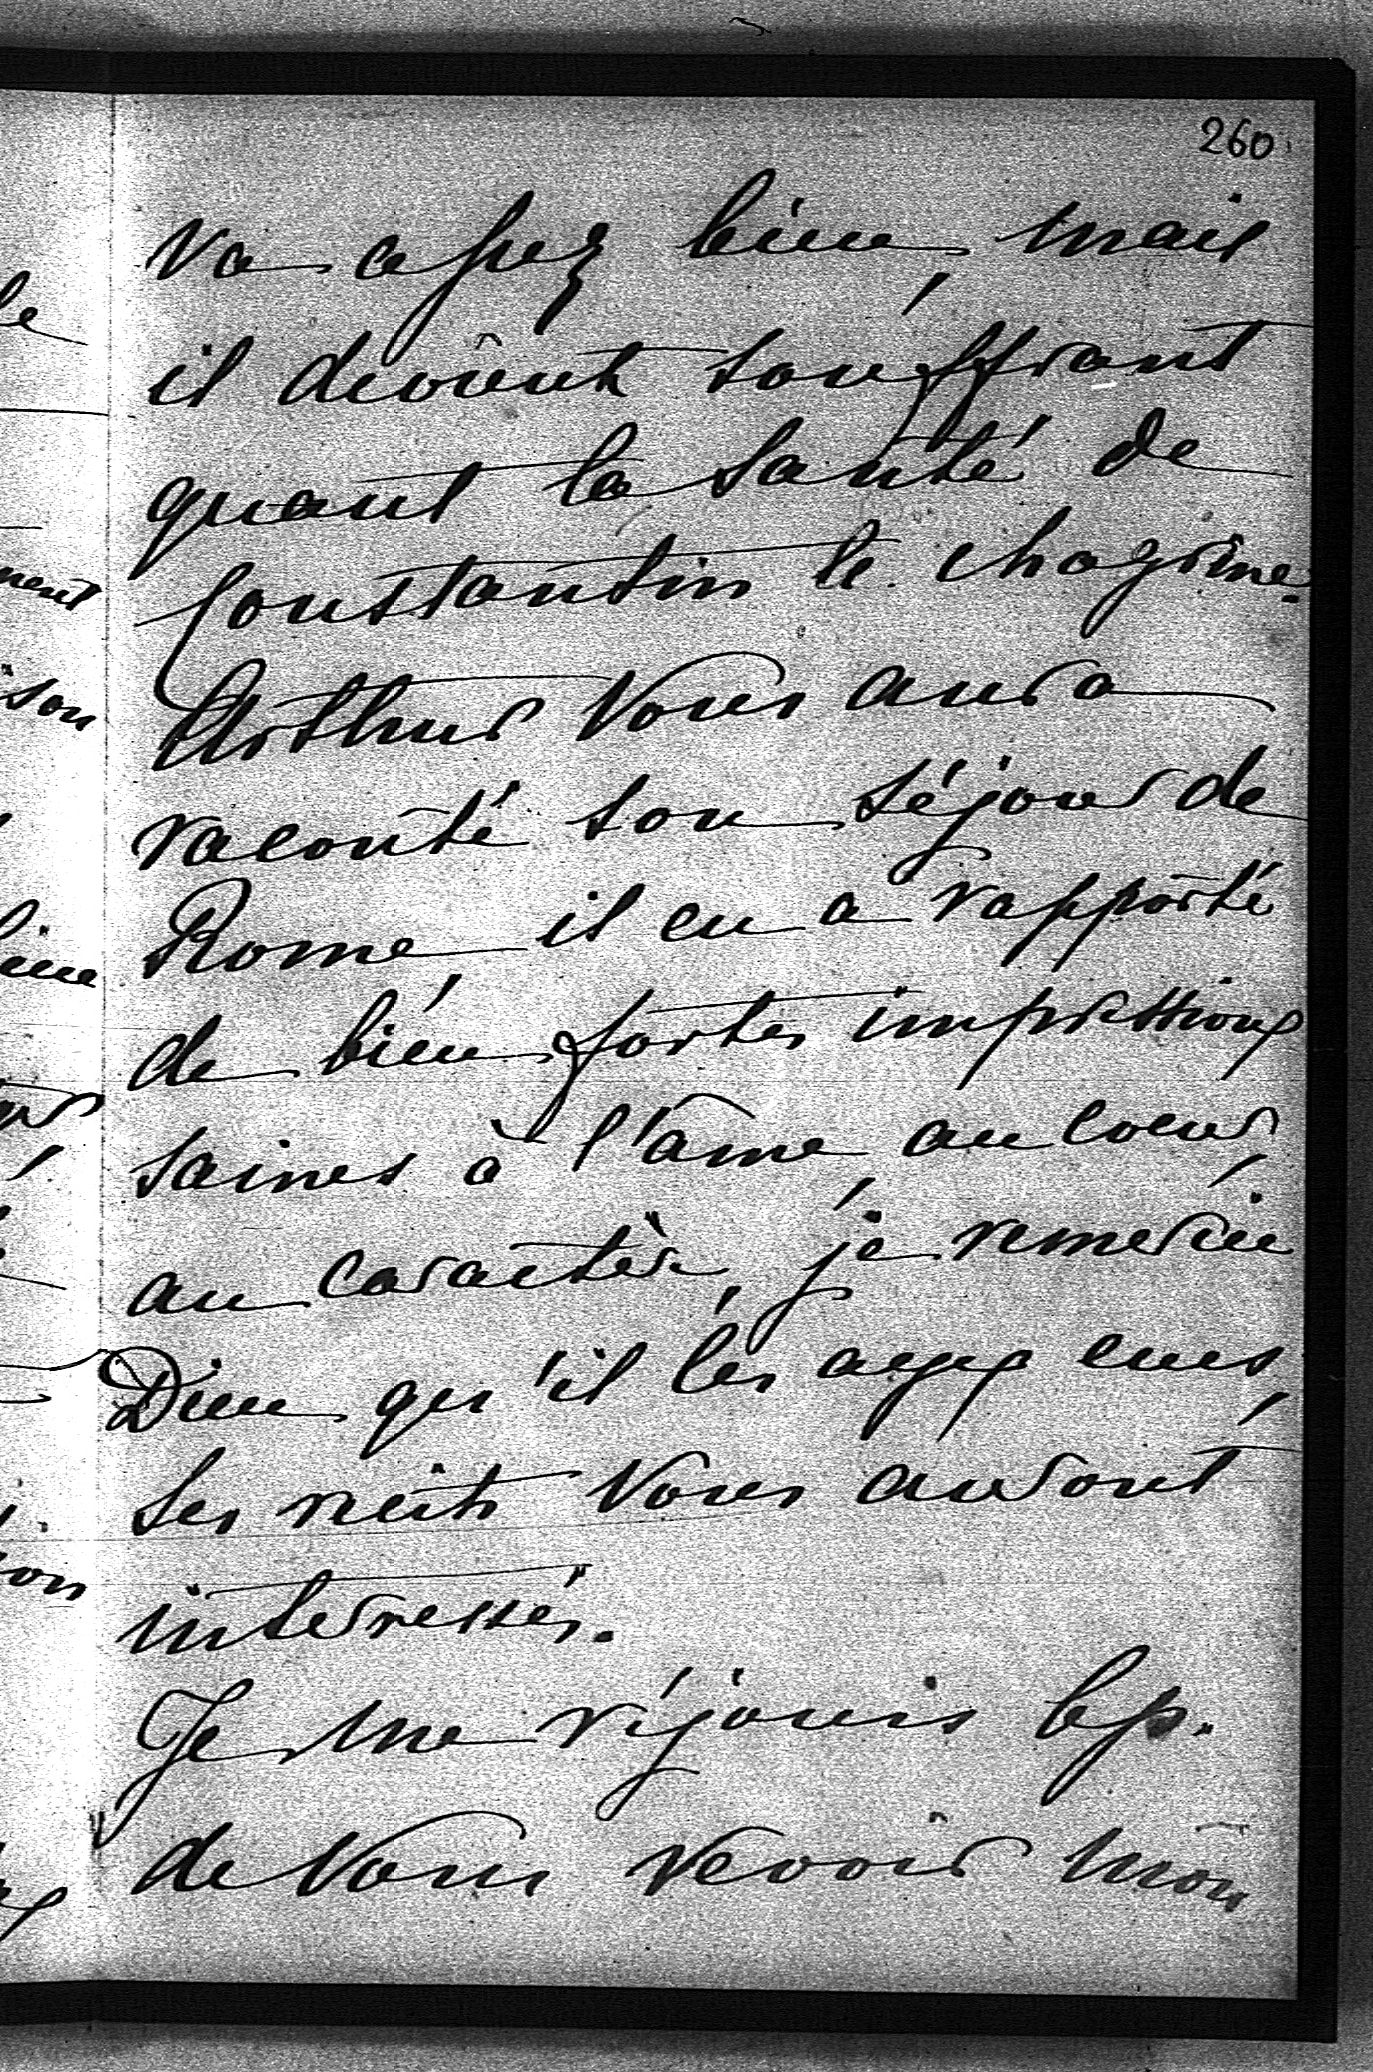 260
va assez bien, mais
il devient souffrant
quant la santé de
Constantin le chagrine.
Arthur vous aura
raconté son séjour de
Rome il en a rapporté
de bien fortes impressions
saines à l'âme, au coeur,
au caractère, je remercie
Dieu qu'il les ayex eues,
ses recits vous auront
interressés.
Je me réjouis bp.
de vous revoir mon